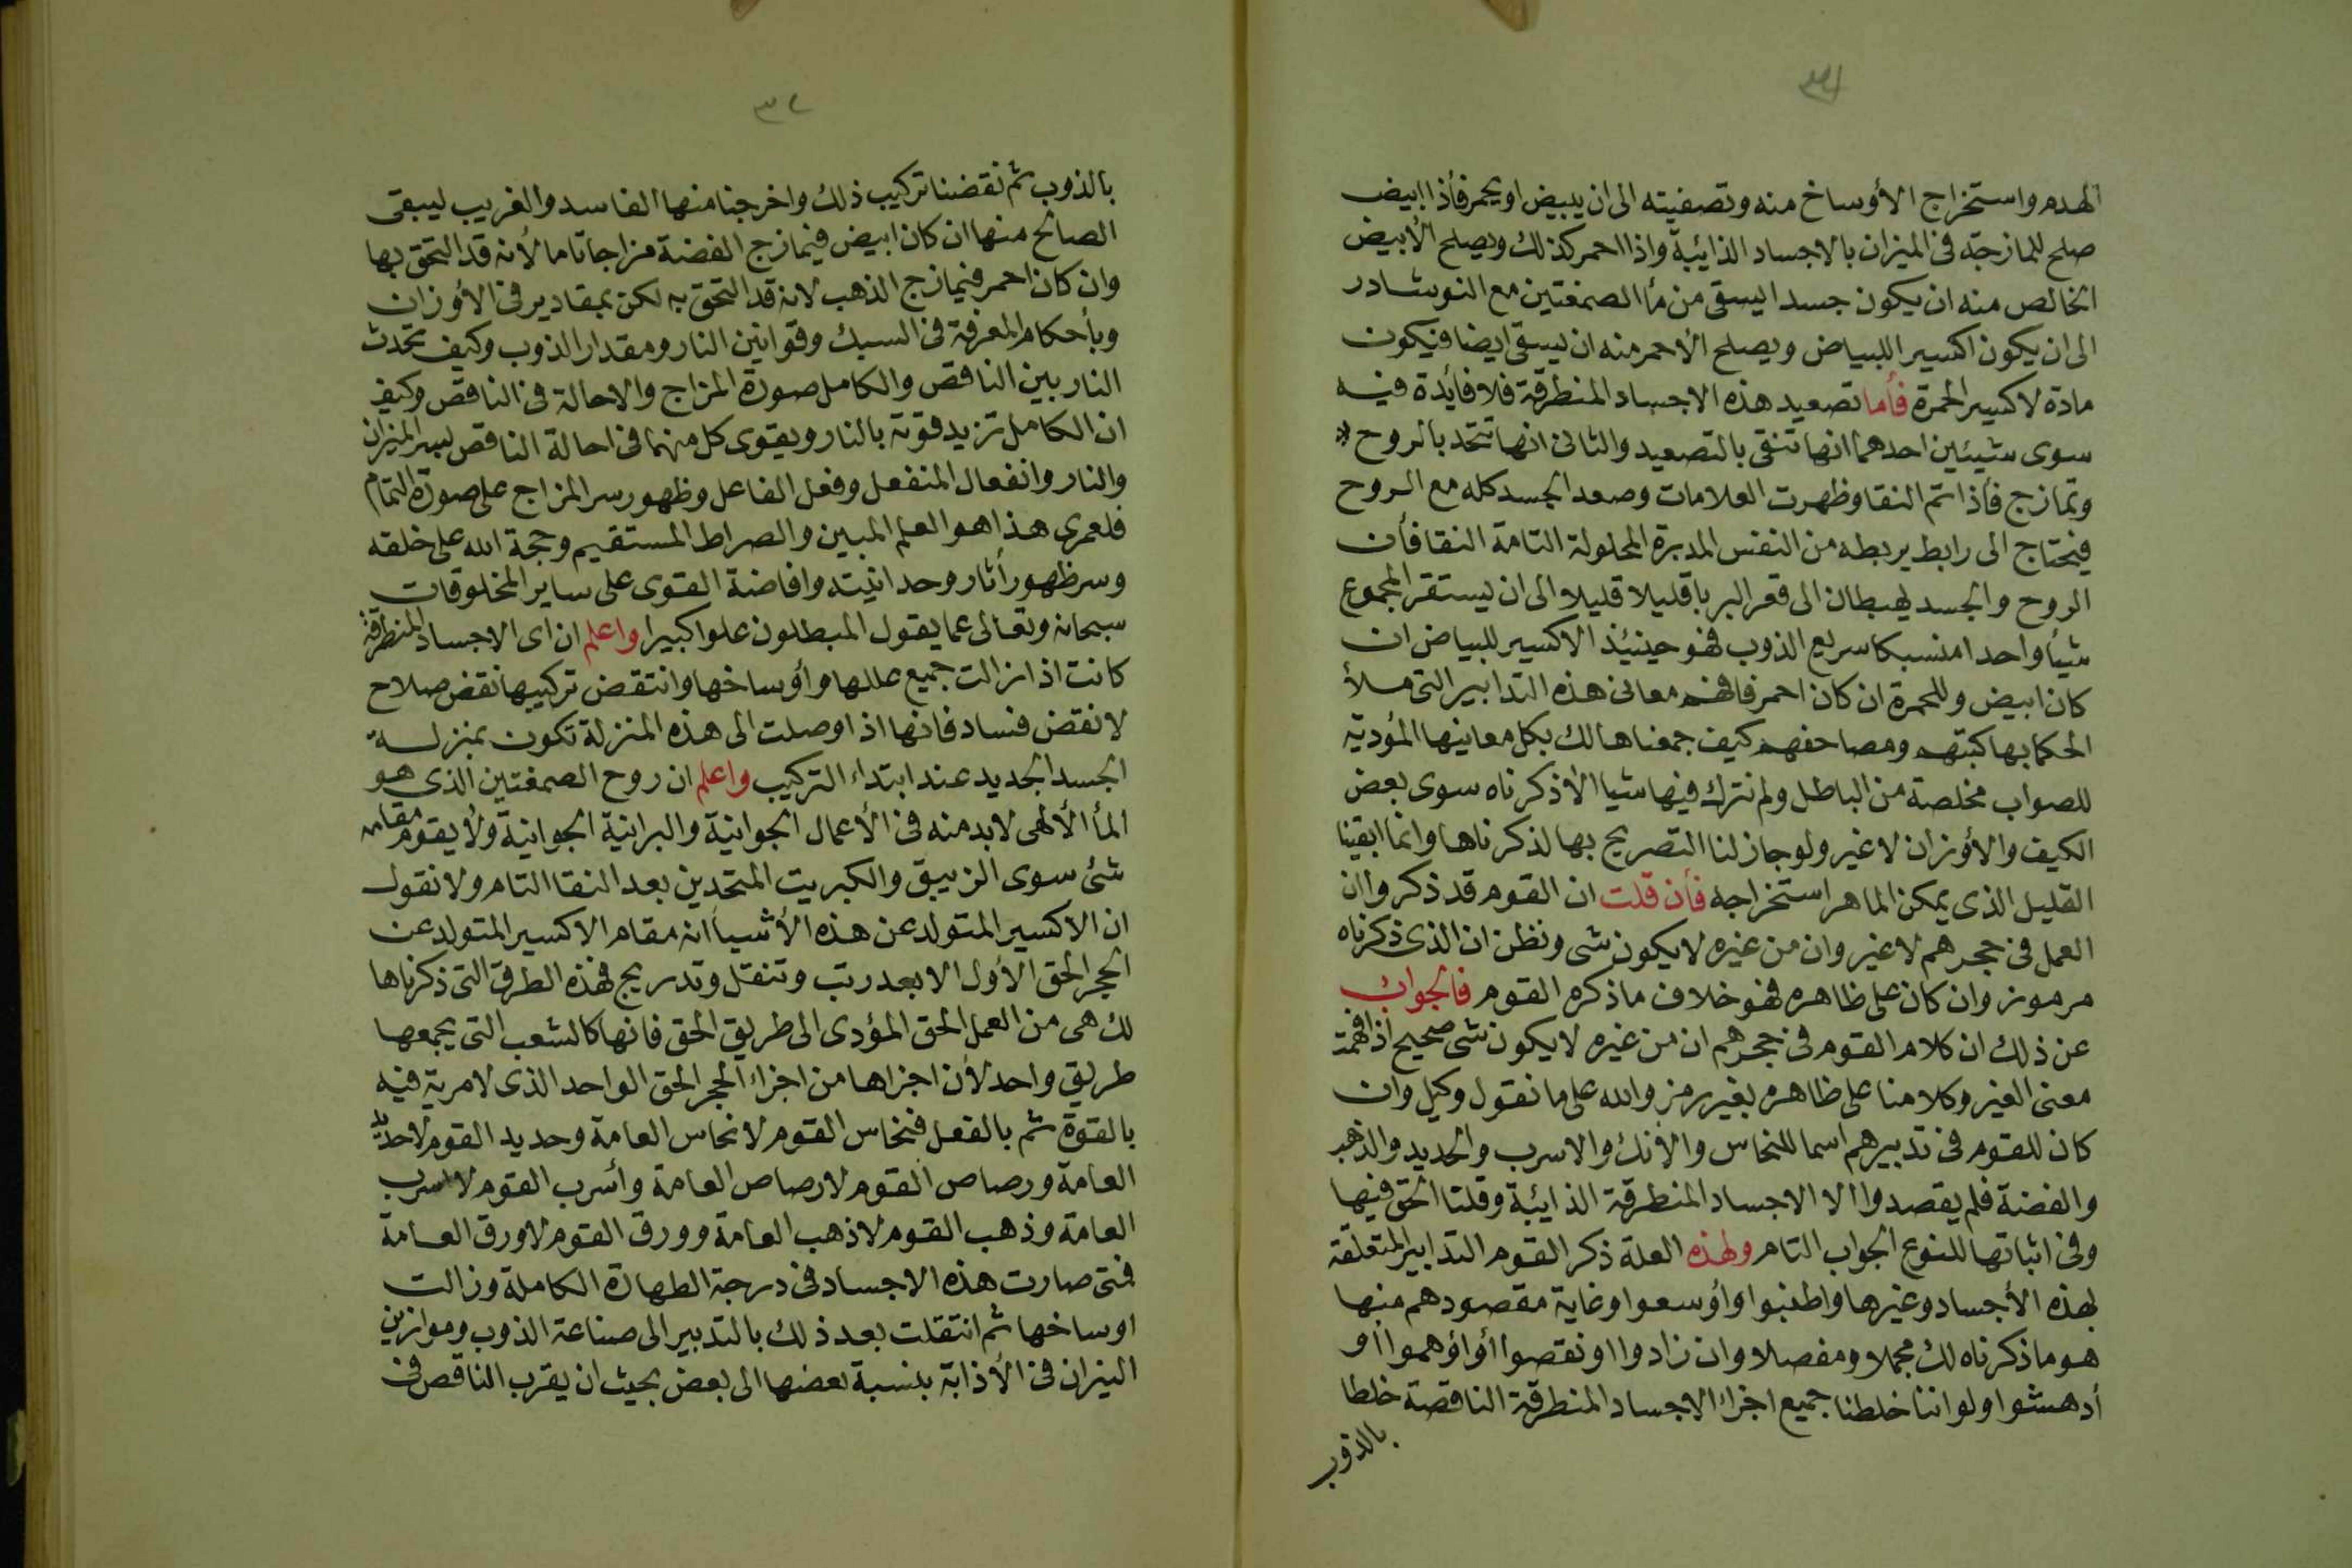 الهدم واستخراج الأوساخ منه وتصفيته الى ان يبيض او يحمر فأذا ابيض
صلح للمازجة فى الميزان بالاجساد الذائبة واذا احمر كذلك ويصلح الأبيض
الخالص منه ان يكون جسدا ليسقى من مأ الصمغتين مع النوشادر
الى ان يكون اكسير اللبياض ويصلح الأحمر منه ان يسقى ايضا فيكون
مادة لاكسير الحمرة فأما تصعيد هذه الاجساد المنطرقة فلا فأيدة فيه
سوى شيئين احدهما انها تنقى بالتصعيد والثانى انها تتحد بالروح
وتمازج فأذا تم النقا وظهرت العلامات وصعد الجسد كله مع الروح
فيحتاج الى رابط يربطه من النفس المدبرة المحلولة التامة النقا فأن
الروح والجسد يهبطان الى قعر البربا قليلا قليلا الى ان يستقر المجموع
شيأ واحدا منسبكا سريع الذوب فهو حينئيذ الاكسير للبياض ان
كان ابيض وللحمرة ان كان احمر فافهم معانى هذه التدابير التى ملأ
الحكما بها كتبهم ومصاحفهم كيف جمعناها لك بكل معانيها المؤدية
للصواب مخلصة من الباطل ولم نترك فيها شيا الا ذكرناه سوى بعض
الكيف والأوزان لا غير ولو جاز لنا التصريح بها لذكرناها وانما ابقينا
القليل الذى يمكن الماهر استخراجه فأن قلت ان القوم قد ذكروا ان
العمل فى حجرهم لا غير وان من غيره لا يكون شى ونظن ان الذى ذكرناه
مرموز وان كان على ظاهره فهو خلاف ما ذكره القوم فالجواب
عن ذلك ان كلام القوم فى حجرهم ان من غيره لا يكون شى صحيح اذا فهمت
معنى الغير وكلامنا على ظاهره بغير رمز والله على ما نقول وكيل وان
كان للقوم فى تدبيرهم اسما للنحاس والأنك والاسرب والحديد والذهب
والفضة فلم يقصدوا الا الاجساد المنطرقة الذايبة وقلنا الحق فيها
وفى اثباتها للنوع الجواب التام ولهذه العلة ذكر القوم التدابير المتعلقة
بهذه الأجساد وغيرها واطنبوا وأوسعوا وغاية مقصودهم منها
هو ما ذكرناه لك مجملا ومفصلا وان زادوا او نقصوا أو اؤهموا أو
أدهشوا ولو اننا خلطنا جميع اجزاء الاجساد المنطرقة الناقصة خلطا
بالذوب
٣٢
بالذوب ثم نقضنا تركيب ذلك واخرجنا منها الفاسد والغريب ليبقى
الصالح منها ان كان ابيض فيمازج الفضة مزاجا تاما لأنه قد التحق بها
وان كان احمر فيمازج الذهب لانه قد التحق به لكن بمقادير فى الأوزان
وبأحكام المعرفة فى السبك وقوانين النار ومقدار الذوب وكيف تحدث
النار بين الناقص والكامل صورة المزاج والاحالة فى الناقص وكيف
ان الكامل تزيد قوته بالنار ويقوى كل منهما فى احالة الناقص بسر الميزان
والنار وانفعال المنفعل وفعل الفاعل وظهور سر المزاج على صورة التمام
فلعمرى هذا هو العلم المبين والصراط المستقيم وحجة الله على خلقه
وسر ظهور أثار وحدانيته وافاضة القوى على ساير المخلوقات
سبحانه وتعالى عما يقول المبطلون علوا كبيرا واعلم ان اى الاجساد المنطرقة
كانت اذا زالت جميع عللها وأوساخها وانتقض تركيبها نقض صلاح
لا نقض فساد فانها اذا وصلت الى هذه المنزلة تكون بمنزلة
الجسد الجديد عند ابتداء التركيب واعلم ان روح الصمغتين الذى هو
المأ الألهى لا بد منه فى الأعمال الجوانية والبرانية الجوانية ولا يقوم مقامه
شئ سوى الزيبق والكبريت المتحدين بعد النقا التام ولا نقول
ان الاكسير المتولد عن هذه الأشيأ انه مقام الاكسير المتولد عن
الحجر الحق الأول الا بعد رتب وتنقل وتدريج فهذه الطرق التى ذكرناها
لك هى من العمل الحق المؤدى الى طريق الحق فانها كالشعب التى يجمعها
طريق واحد لأن اجزاها من اجزاء الحجر الحق الواحد الذى لا مرية فيه
بالقوة ثم بالفعل فنحاس القوم لا نحاس العامة وحديد القوم لا حديد
العامة ورصاص القوم لا رصاص العامة وأسرب القوم لا اسرب
العامة وذهب القوم لا ذهب العامة وورق القوم لا ورق العامة
فمتى صارت هذه الاجساد فى درجة الطهارة الكاملة وزالت
اوساخها ثم انتقلت بعد ذلك بالتدبير الى صناعة الذوب وموازين
النيران فى الأذابة بنسبة بعضها الى بعض بحيث ان يقرب الناقص فى